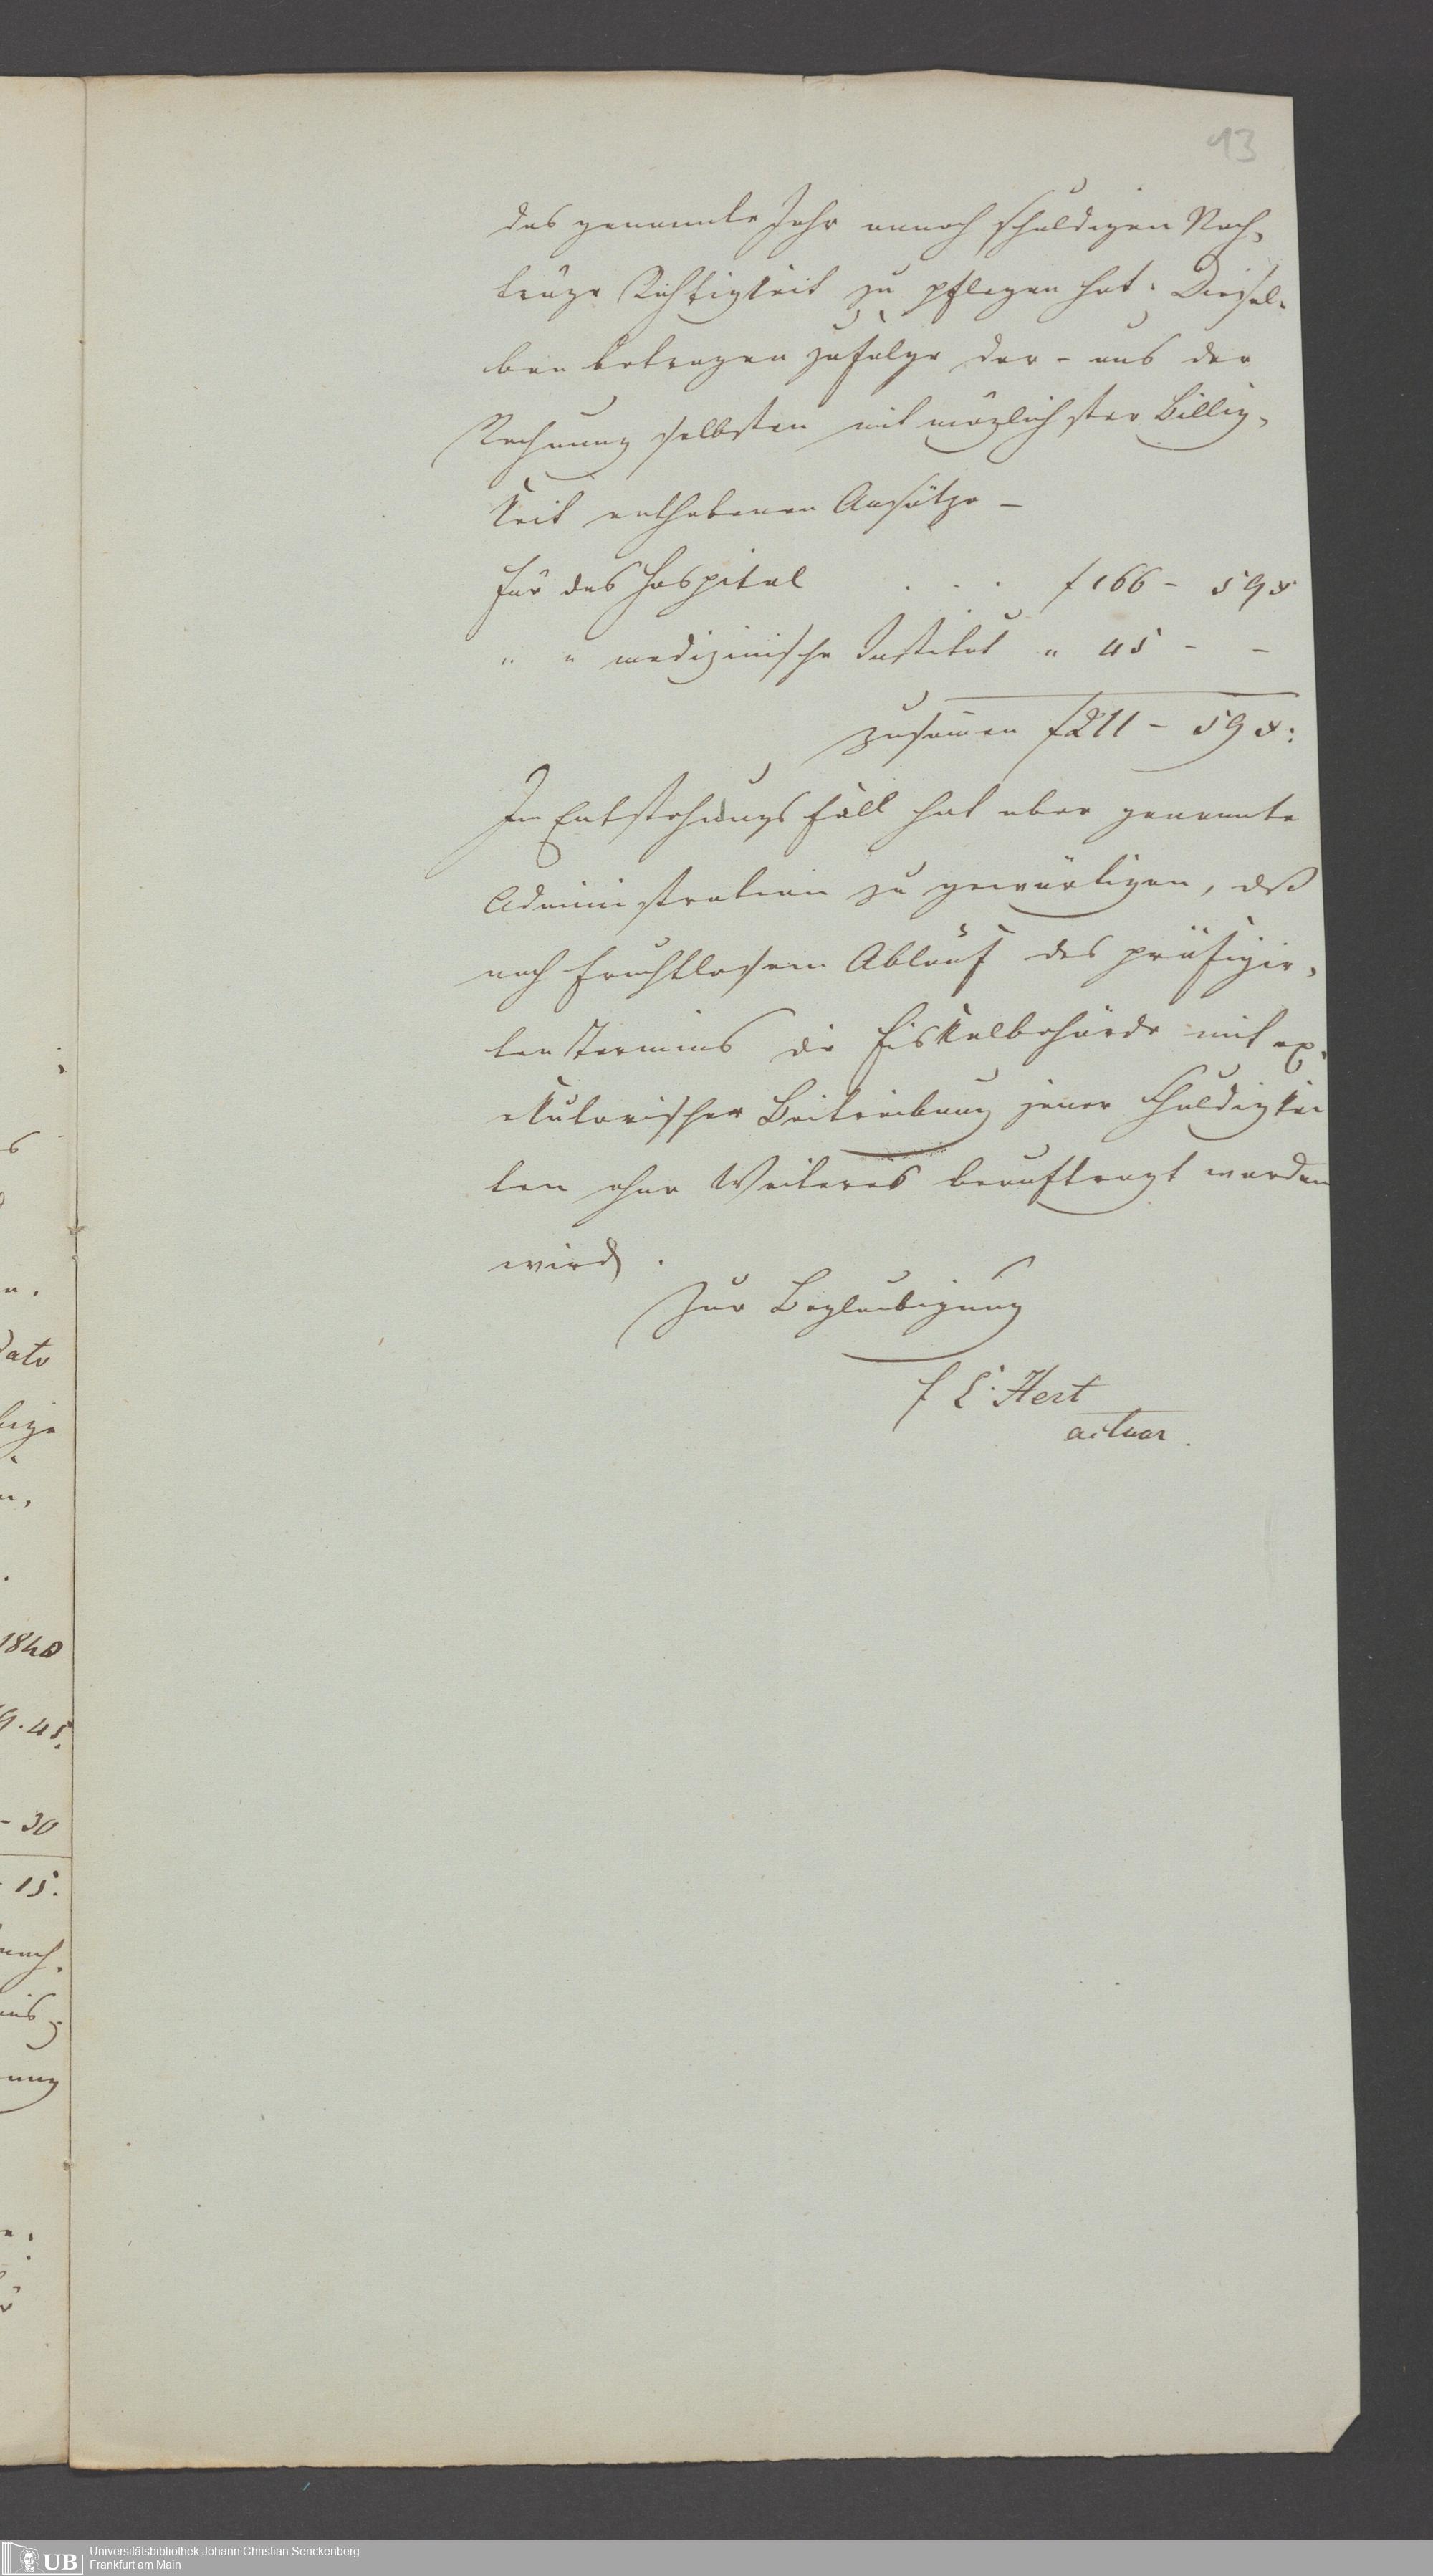 13
das genannte Jahr annoch schuldigen Nach,
träge Richtigkeit zu pflegen hat. Diesel,
ben betragen zufolge der - aus der
Rechnung selbsten mit möglichster Billig,
keit enthobenen Ansätze –
für das Hospital . . . f 166 - 59 x
" " medizinische Institut " 45 - -
zusam̄en f 211 - 59 x:
Im Entstehungsfall hat aber genannte
Administration zu gewärtigen, daß
nach fruchtlosem Ablauf des präfigir,
ten Termins die Fiskalbehörde mit ex,
ekutorischer Beitreibung jener Schuldigkei
ten ohne Weiteres beauftragt werden
wird.
Zur Beglaubigung
Hert
actuar.
dato
1840
45.
- 30
15.
Universitätsbibliothek Johann Christian Senckenberg
Frankfurt am Main
UB